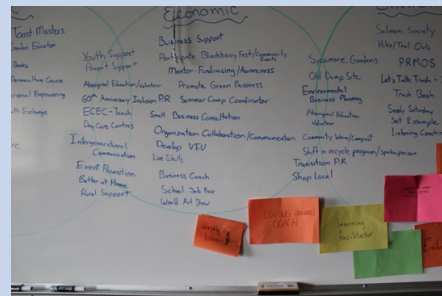 Economic
Toast Masters
Garden Educator
Books
Permaculture Course
Personal Empowering
Youth Exchange
Youth Support
Parent Support
Aboriginal Education/Volunteer
60th Anniversary Inclusion P.R
ECEC-Teach
Day Care Centres
Intergenerational
Communication
Event Promotion
Better at Home
Rural Support
Business Support
Participate Blackberry Fest/Community Events
Mentor Fundraising/Awareness
Promote Green Business
Summer Camp Coordinator
Small Business Consultation
Organization Collaboration/Communication
Develop VIU
Live Skills
Business Coach
School Job Fair
World Art Show
Sycamore Gardens
Old Dump Site
Environmental
Business Planning
Aboriginal Education
Volunteer
Community Worm/Compost
Shift in recycle program/spokesperson
Transition P.R
Shop Local
Salmon Society
Hike/Trail Club
PRMOS
Let's Talk Trash -
Trash Bash
Seedy Saturday
Set Example
Listening
LOVING
COACH
learning
facilitator